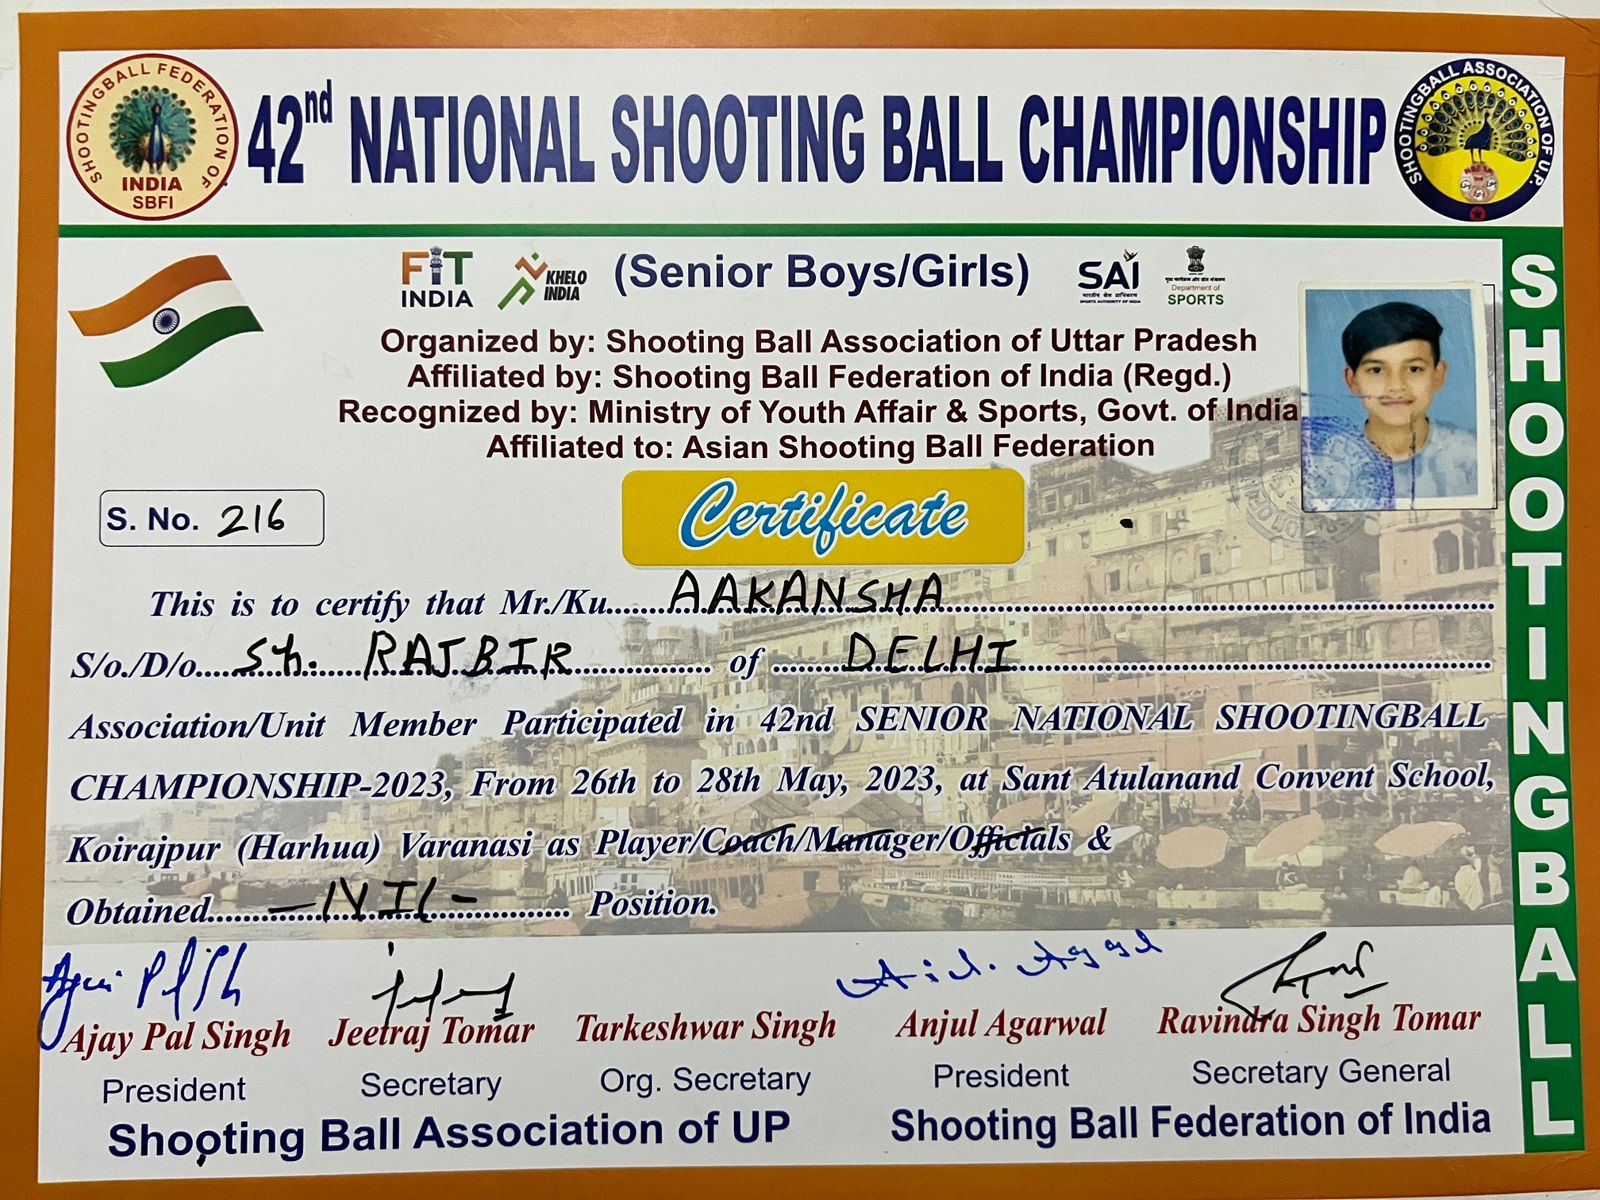 SHOOTINGBALL FEDERATION OF
INDIA
SBFI
42nd NATIONAL SHOOTING BALL CHAMPIONSHIP
SHOOTINGBALL ASSOCIATION OF U.P.
FIT
INDIA
KHELO
INDIA
(Senior Boys/Girls)
SAI
भारतीय खेल प्राधिकरण
SPORTS AUTHORITY OF INDIA
Department of
SPORTS
Organized by: Shooting Ball Association of Uttar Pradesh
Affiliated by: Shooting Ball Federation of India (Regd.)
Recognized by: Ministry of Youth Affair & Sports, Govt. of India
Affiliated to: Asian Shooting Ball Federation
S. No. 216
Certificate
This is to certify that Mr./Ku......AAKANSHA
S/o./D/o....Sh. RAJBIR of DELHI
Association/Unit Member Participated in 42nd SENIOR NATIONAL SHOOTINGBALL
CHAMPIONSHIP-2023, From 26th to 28th May, 2023, at Sant Atulanand Convent School,
Koirajpur (Harhua) Varanasi as Player/Coach/Manager/Officials &
Obtained Position.
Ajay Pal Singh Jeetraj Tomar Tarkeshwar Singh Anjul Agarwal Ravindra Singh Tomar
President Secretary Org. Secretary President Secretary General
Shooting Ball Association of UP Shooting Ball Federation of India
SHOOTINGBALL